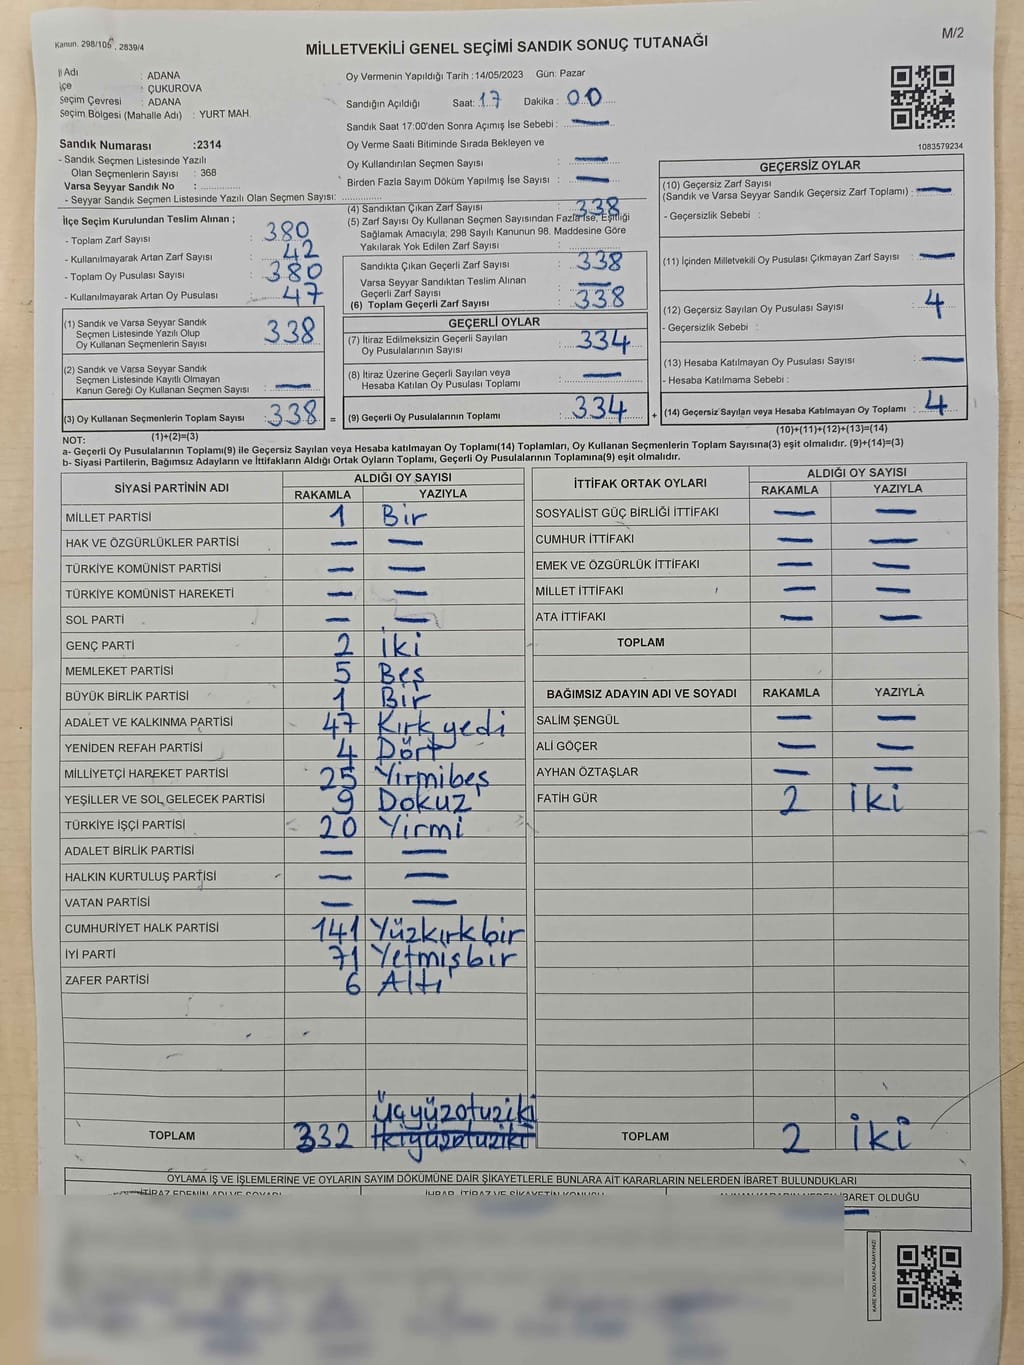 Kanun. 298/105, 2839/4
MİLLETVEKİLİ GENEL SEÇİMİ SANDIK SONUÇ TUTANAĞI
M/2
İl Adı : ADANA
İlçe : ÇUKUROVA
Seçim Çevresi : ADANA
Seçim Bölgesi (Mahalle Adı) : YURT MAH.
Sandık Numarası :2314
- Sandık Seçmen Listesinde Yazılı
Olan Seçmenlerin Sayısı : 368
Varsa Seyyar Sandık No :
- Seyyar Sandık Seçmen Listesinde Yazılı Olan Seçmen Sayısı:
Oy Vermenin Yapıldığı Tarih : 14/05/2023 Gün: Pazar
Sandığın Açıldığı Saat: 17 Dakika : 00
Sandık Saat 17:00'den Sonra Açımış İse Sebebi : —
Oy Verme Saati Bitiminde Sırada Bekleyen ve
Oy Kullandırılan Seçmen Sayısı : —
Birden Fazla Sayım Döküm Yapılmış İse Sayısı : —
1083579234
İlçe Seçim Kurulundan Teslim Alınan ;
- Toplam Zarf Sayısı : 380
- Kullanılmayarak Artan Zarf Sayısı : 42
- Toplam Oy Pusulası Sayısı : 380
- Kullanılmayarak Artan Oy Pusulası : 47
(1) Sandık ve Varsa Seyyar Sandık
Seçmen Listesinde Yazılı Olup
Oy Kullanan Seçmenlerin Sayısı : 338
(2) Sandık ve Varsa Seyyar Sandık
Seçmen Listesinde Kayıtlı Olmayan
Kanun Gereği Oy Kullanan Seçmen Sayısı : —
(3) Oy Kullanan Seçmenlerin Toplam Sayısı : 338 =
(1)+(2)=(3)
(4) Sandıktan Çıkan Zarf Sayısı : 338
(5) Zarf Sayısı Oy Kullanan Seçmen Sayısından Fazla İse, Eşitliği
Sağlamak Amacıyla; 298 Sayılı Kanunun 98. Maddesine Göre
Yakılarak Yok Edilen Zarf Sayısı :
Sandıkta Çıkan Geçerli Zarf Sayısı : 338
Varsa Seyyar Sandıktan Teslim Alınan
Geçerli Zarf Sayısı : —
(6) Toplam Geçerli Zarf Sayısı : 338
GEÇERLİ OYLAR
(7) İtiraz Edilmeksizin Geçerli Sayılan
Oy Pusulalarının Sayısı : 334
(8) İtiraz Üzerine Geçerli Sayılan veya
Hesaba Katılan Oy Pusulası Toplamı : —
(9) Geçerli Oy Pusulalarının Toplamı : 334 +
GEÇERSİZ OYLAR
(10) Geçersiz Zarf Sayısı
(Sandık ve Varsa Seyyar Sandık Geçersiz Zarf Toplamı) : —
- Geçersizlik Sebebi :
(11) İçinden Milletvekili Oy Pusulası Çıkmayan Zarf Sayısı : —
(12) Geçersiz Sayılan Oy Pusulası Sayısı : 4
- Geçersizlik Sebebi :
(13) Hesaba Katılmayan Oy Pusulası Sayısı : —
- Hesaba Katılmama Sebebi :
(14) Geçersiz Sayılan veya Hesaba Katılmayan Oy Toplamı : 4
(10)+(11)+(12)+(13)=(14)
NOT:
a- Geçerli Oy Pusulalarının Toplamı(9) ile Geçersiz Sayılan veya Hesaba katılmayan Oy Toplamı(14) Toplamları, Oy Kullanan Seçmenlerin Toplam Sayısına(3) eşit olmalıdır. (9)+(14)=(3)
b- Siyasi Partilerin, Bağımsız Adayların ve İttifakların Aldığı Ortak Oyların Toplamı, Geçerli Oy Pusulalarının Toplamına(9) eşit olmalıdır.
SİYASİ PARTİNİN ADI ALDIĞI OY SAYISI
RAKAMLA YAZIYLA
MİLLET PARTİSİ 1 Bir
HAK VE ÖZGÜRLÜKLER PARTİSİ — —
TÜRKİYE KOMÜNİST PARTİSİ — —
TÜRKİYE KOMÜNİST HAREKETİ — —
SOL PARTİ — —
GENÇ PARTİ 2 İki
MEMLEKET PARTİSİ 5 Beş
BÜYÜK BİRLİK PARTİSİ 1 Bir
ADALET VE KALKINMA PARTİSİ 47 Kırk yedi
YENİDEN REFAH PARTİSİ 4 Dört
MİLLİYETÇİ HAREKET PARTİSİ 25 Yirmibeş
YEŞİLLER VE SOL GELECEK PARTİSİ 9 Dokuz
TÜRKİYE İŞÇİ PARTİSİ 20 Yirmi
ADALET BİRLİK PARTİSİ — —
HALKIN KURTULUŞ PARTİSİ — —
VATAN PARTİSİ — —
CUMHURİYET HALK PARTİSİ 141 Yüzkırkbir
İYİ PARTİ 71 Yetmişbir
ZAFER PARTİSİ 6 Altı
Üçyüzotuziki
TOPLAM 332 İkiyüzotuziki
İTTİFAK ORTAK OYLARI ALDIĞI OY SAYISI
RAKAMLA YAZIYLA
SOSYALİST GÜÇ BİRLİĞİ İTTİFAKI — —
CUMHUR İTTİFAKI — —
EMEK VE ÖZGÜRLÜK İTTİFAKI — —
MİLLET İTTİFAKI — —
ATA İTTİFAKI — —
TOPLAM
BAĞIMSIZ ADAYIN ADI VE SOYADI RAKAMLA YAZIYLA
SALİM ŞENGÜL — —
ALİ GÖÇER — —
AYHAN ÖZTAŞLAR — —
FATİH GÜR 2 İki
TOPLAM 2 İki
OYLAMA İŞ VE İŞLEMLERİNE VE OYLARIN SAYIM DÖKÜMÜNE DAİR ŞİKAYETLERLE BUNLARA AİT KARARLARIN NELERDEN İBARET BULUNDUKLARI
İBARET OLDUĞU
KARE KODU KARALAMAYINIZ!